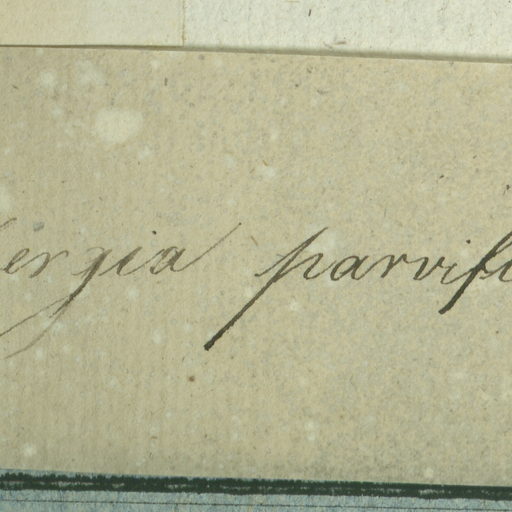 ergia parvifl